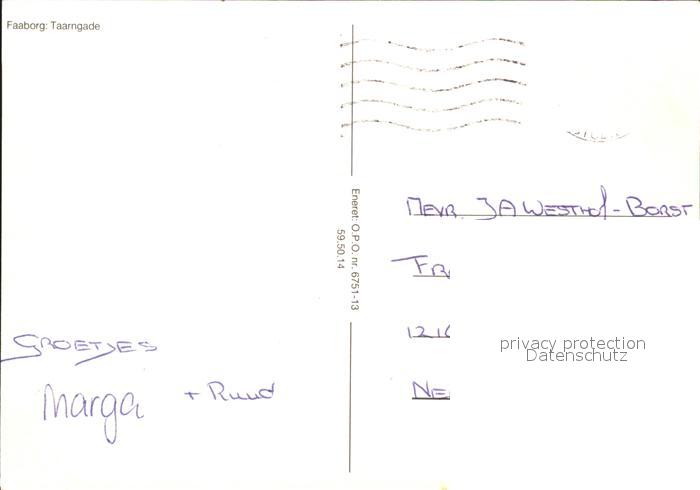 Faaborg: Taarngade
Eneret: O.P.O. nr. 6751-13
59.50.14
GROETJES
Marga + Ruud
MEVR. JA WESTHOF-BORST
FR
121
NE
privacy protection
Datenschutz